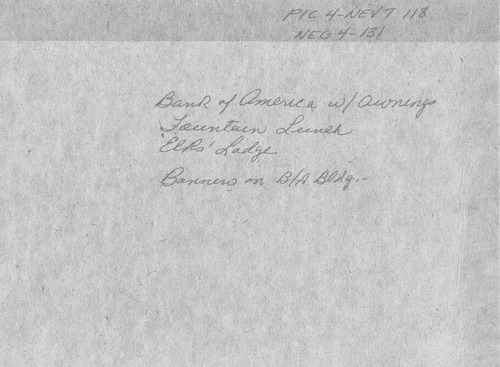 PIC 4-NEV7 118
NEG 4-131
Bank of America w/ awnings
Fountain Lunch
Elks' Lodge
Banners on B/A Bldg.-